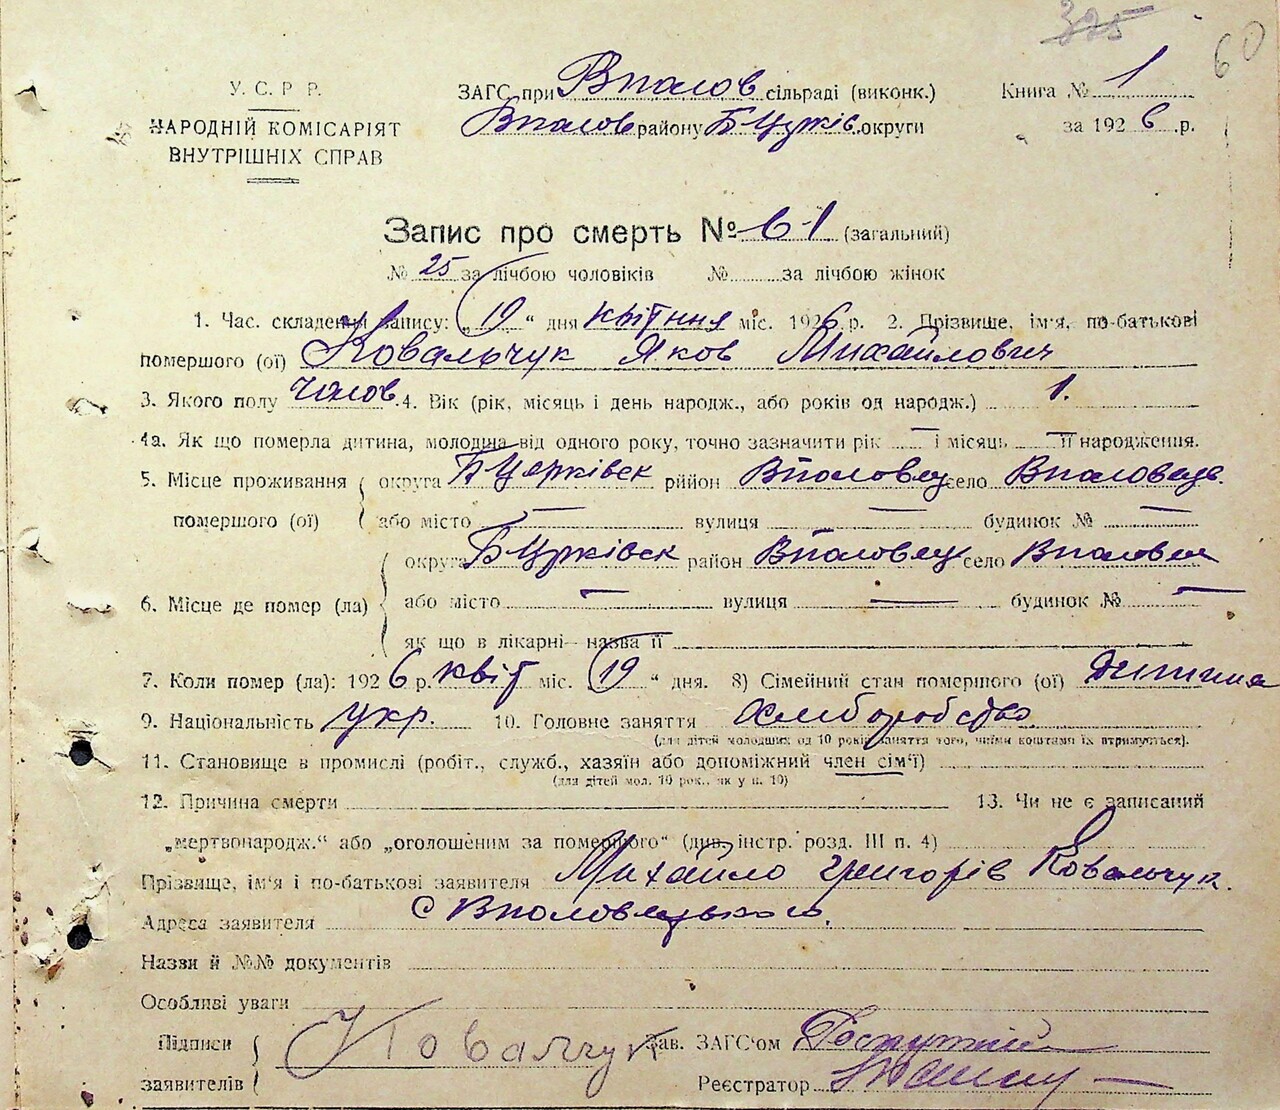 325
60
У. С. Р. Р.
НАРОДНІЙ КОМІСАРІЯТ
ВНУТРІШНІХ СПРАВ
ЗАГС при Вполов сільраді (виконк.)
Вполов району Б Церків. округи
Книга № 1
за 1926 р.
Запис про смерть № 61 (загальний)
№ 25 за лічбою чоловіків № за лічбою жінок
1. Час. складення запису: „19“ дня квітння міс. 1926 р. 2. Прізвище, ім'я, по-батькові
помершого (ої) Ковальчук Яков Михайлович
3. Якого полу чолов. 4. Вік (рік, місяць і день народж., або років од народж.) 1.
4а. Як що померла дитина, молодша від одного року, точно зазначити рік — і місяць — її народження.
5. Місце проживання помершого (ої) округа Б Церківск район Вполовец село Вполовець.
або місто — вулиця — будинок № —
6. Місце де помер (ла) округа Б Црківск район Вполовец село
або місто — вулиця — будинок № —
як що в лікарні—назва її
7. Коли помер (ла): 1926 р. квіт міс. „19“ дня. 8) Сімейний стан помершого (ої) дитина
9. Національність укр. 10. Головне заняття Хлиборобство
(для дітей молодших од 10 років заняття того, чиїми коштами їх втримується).
11. Становище в промислі (робіт., служб., хазяїн або допоміжний член сім'ї)
(для дітей мол. 10 рок., як у п. 10)
12. Причина смерти 13. Чи не є записаний
„мертвонародж.“ або „оголошеним за помершого“ (див. інстр. розд. III п. 4)
Прізвище, ім'я і по-батькові заявителя Михайло Григорів Ковальчук.
Адреса заявителя с Вполовецького.
Назви й №№ документів
Особливі уваги
Підписи заявителів Ковальчук Зав. ЗАГС'ом
Реєстратор